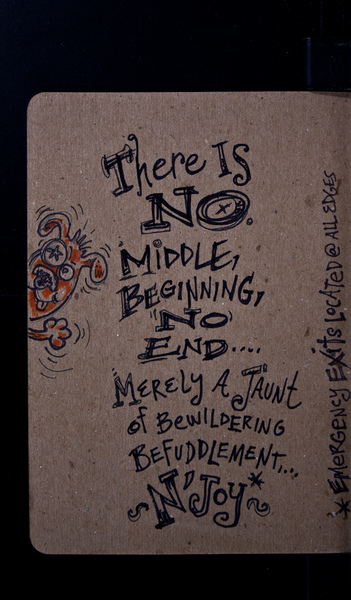 There IS
NO.
MIDDLE,
BEGINNING,
"NO
END....
MERELY A JAUNT
of BEWILDERING
BEFUDDLEMENT...
~N'JOY*~
* EMERGENCY EXITS LOCATED @ ALL EDGES